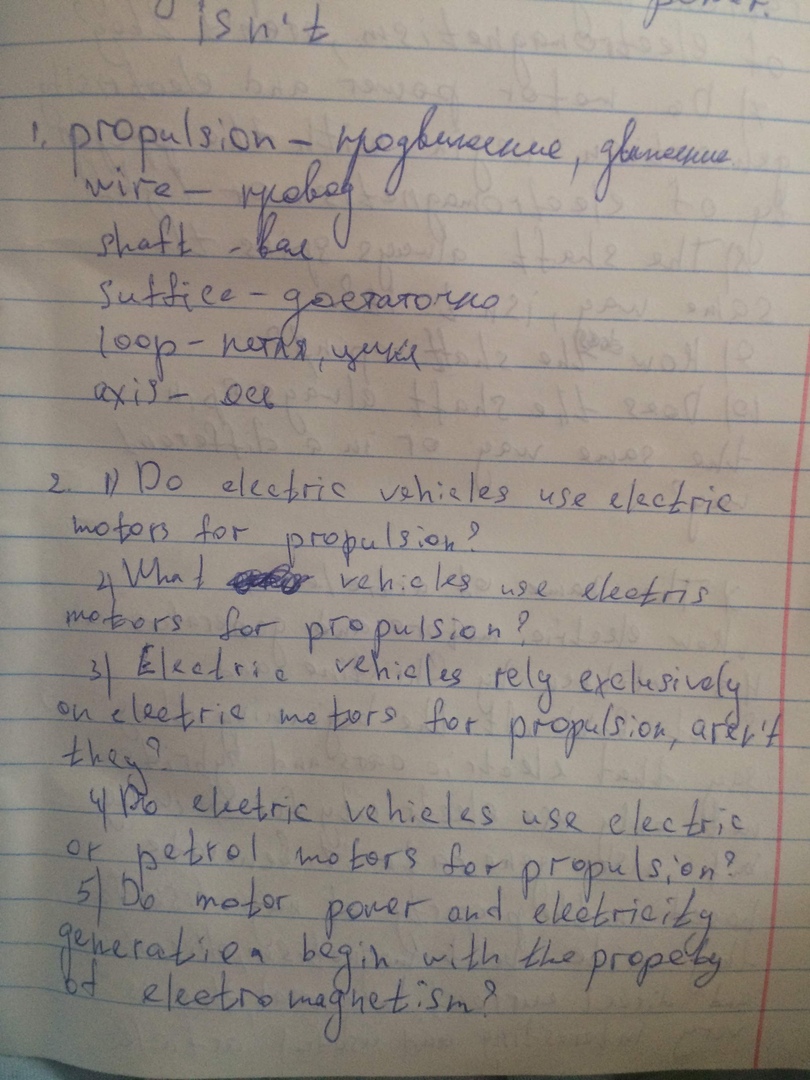 isn't
1. propulsion – продвижение, движение
wire – провод
shaft - вал
suffice – достаточно
loop – петля, цикл
axis – ось
2. 1) Do electric vehicles use electric
motors for propulsion?
2) What vehicles use electris
motors for propulsion?
3) Electric vehicles rely exclusively
on electric motors for propulsion, aren't
they?
4) Do electric vehicles use electric
or petrol motors for propulsion?
5) Do motor power and electricity
generation begin with the propety
of electromagnetism?